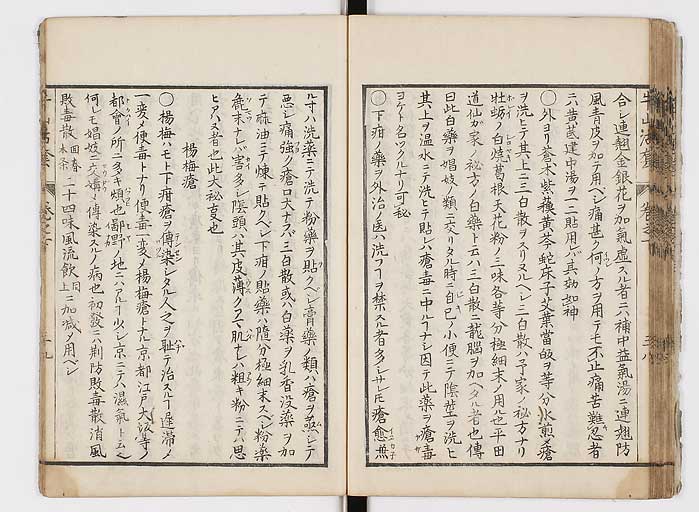 合シ連翹金銀花ヲ加氣虚スル者ニハ補中益氣湯ニ連翹防
風青皮ヲ加テ用ベシ痛甚ク何ノ方ヲ用テモ不止痛苦難忍者
ニハ黄芪建中湯ヲ一二貼用ルバ其効如神
○外ヨリ蒼木紫蘓黄芩蛇床子艾葉當皈ヲ等分水煎メ瘡
ヲ洗ヒテ其上ニ三白散ヲスリヌルベシ三白散ハ予家ノ秘方ナリ
牡蛎ノ白焼葛根天花粉ノ三味各等分極細末ノ用ル也平田
道仙ガ家ノ秘方ノ白藥ト云ハ三白散ニ龍脳ヲ加ヘタル者也傳
曰此白藥ヲ娼妓ノ類ニ交リタル時ニ自己ノ小便ニテ陰莖ヲ洗ヒ
其上ヲ温水ニテ洗ヒテ貼レバ瘡毒ニ中ルヿナシ因テ此藥ヲ瘡毒
ヨケト名ツクルナリ可秘
○下疳ノ藥ヲ外治ノ医ハ洗フヿヲ禁スル者多シサレ𪜈瘡愈兼
ル寸ハ洗藥ニテ洗テ粉藥ヲ貼クベシ膏藥ノ類ハ瘡ヲ蒸シテ
悪シ痛強ク瘡口大ナラズ三白散或ハ白藥ヲ乳香没藥ヲ加
テ麻油ニテ煉テ貼クベシ下疳ノ貼藥ハ随分極細末スベシ粉藥
麁末ナレバ害多シ陰頭ハ其皮薄クメ肌セハ粗キ粉ニテハ思
ヒアハヌ者也此大秘㕝也
楊梅瘡
○楊梅ハモト下疳瘡ヲ傳染シタル人之ヲ恥テ治スルヿ遅滞ノ
一変ノ便毒トナリ便毒一変ノ楊梅瘡トナル京都江戸大坂等ノ
都會ノ所ニ多キ煩也鄙野ノ地ニハカルヿ少シ京ニテハ湿氣ト云
何レモ娼妓ニ交媾ノ傳染スルノ病也初發ニハ荊防敗毒散消風
敗毒散回春本条二十四味風流飲同上ニ加減ノ用ベシ
牛山活套
巻之下